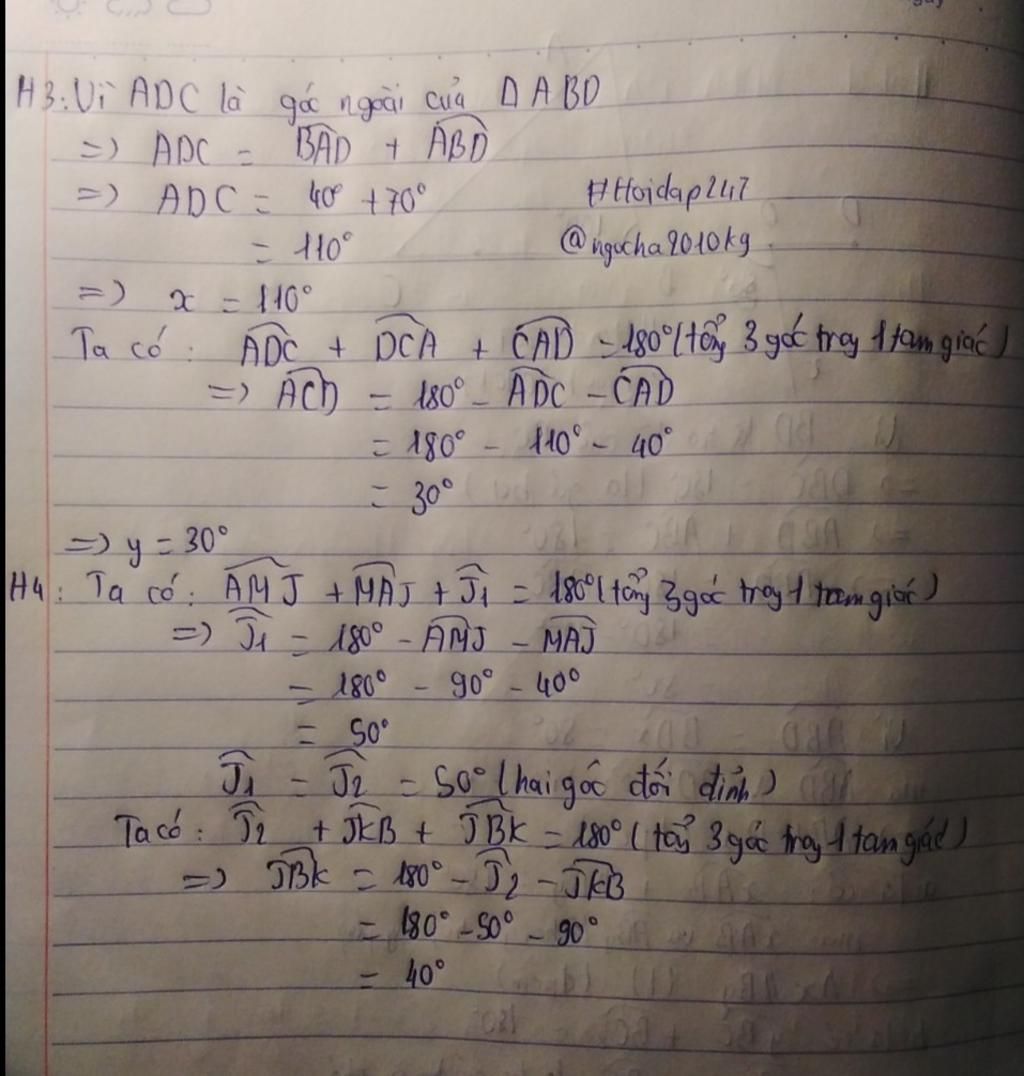 H3: Vì ADC là góc ngoài của ΔABD
=) ADC = BAD + ABD
=) ADC = 40° + 70° #Hoidap247
= 110° @ngocha2010kg
=) x = 110°
Ta có: ADC + DCA + CAD = 180° (tổng 3 góc trog 1 tam giác)
=) ACD = 180° - ADC - CAD
= 180° - 110° - 40°
= 30°
=) y = 30°
H4: Ta có: AMJ + MAJ + J1 = 180° (tổng 3 góc trog 1 tam giác)
=) J1 = 180° - AMJ - MAJ
= 180° - 90° - 40°
= 50°
J1 = J2 = 50° (hai góc đối đỉnh)
Ta có: J2 + JKB + JBK = 180° (tổng 3 góc trog 1 tam giác)
=) JBK = 180° - J2 - JKB
= 180° - 50° - 90°
= 40°